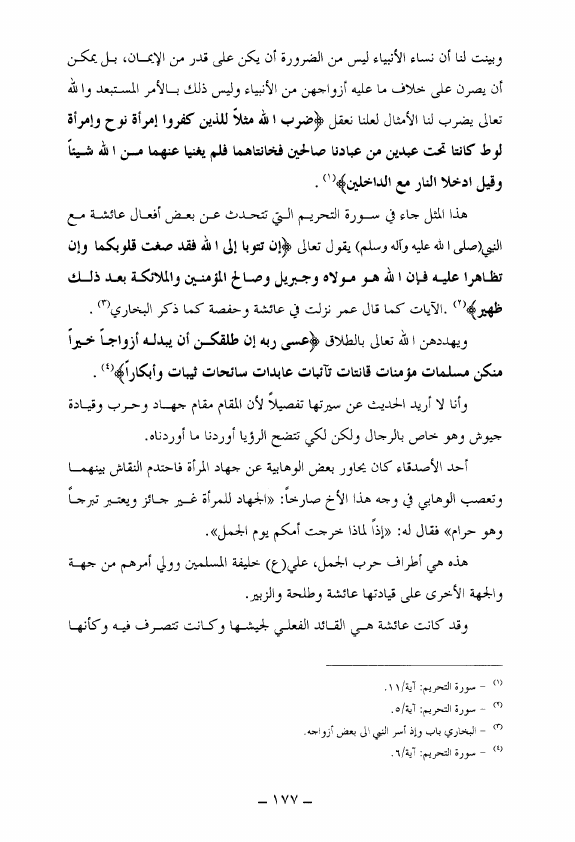 وبينت لنا أن نساء الأنبياء ليس من الضرورة أن يكن على قدر من الإيمان، بل يمكن
أن يصرن على خلاف ما عليه أزواجهن من الأنبياء وليس ذلك بالأمر المستبعد والله
تعالى يضرب لنا الأمثال لعلنا نعقل ﴿ضرب الله مثلاً للذين كفروا إمرأة نوح وإمرأة
لوط كانتا تحت عبدين من عبادنا صالحين فخانتاهما فلم يغنيا عنهما من الله شيئاً
وقيل ادخلا النار مع الداخلين﴾(١) .
هذا المثل جاء في سورة التحريم التي تتحدث عن بعض أفعال عائشة مع
النبي(صلى الله عليه وآله وسلم) يقول تعالى ﴿إن تتوبا إلى الله فقد صغت قلوبكما وإن
تظاهرا عليه فإن الله هو مولاه وجبريل وصالح المؤمنين والملائكة بعد ذلك
ظهير﴾(٢) .الآيات كما قال عمر نزلت في عائشة وحفصة كما ذكر البخاري(٣) .
ويهددهن الله تعالى بالطلاق ﴿عسى ربه إن طلقكن أن يبدله أزواجاً خيراً
منكن مسلمات مؤمنات قانتات تآئبات عابدات سائحات ثيبات وأبكاراً﴾(٤) .
وأنا لا أريد الحديث عن سيرتها تفصيلاً لأن المقام مقام جهاد وحرب وقيادة
جيوش وهو خاص بالرجال ولكن لكي تتضح الرؤيا أوردنا ما أوردناه.
أحد الأصدقاء كان يحاور بعض الوهابية عن جهاد المرأة فاحتدم النقاش بينهما
وتعصب الوهابي في وجه هذا الأخ صارخاً: «الجهاد للمرأة غير جائز ويعتبر تبرجاً
وهو حرام» فقال له: «إذاً لماذا خرجت أمكم يوم الجمل».
هذه هي أطراف حرب الجمل، علي(ع) خليفة المسلمين وولي أمرهم من جهة
والجهة الأخرى على قيادتها عائشة وطلحة والزبير.
وقد كانت عائشة هي القائد الفعلي لجيشها وكانت تتصرف فيه وكأنها
(١) – سورة التحريم: آية/١١.
(٢) – سورة التحريم: آية/٥.
(٣) – البخاري باب وإذ أسر النبي الى بعض أزواجه.
(٤) – سورة التحريم: آية/٦.
– ١٧٧ –